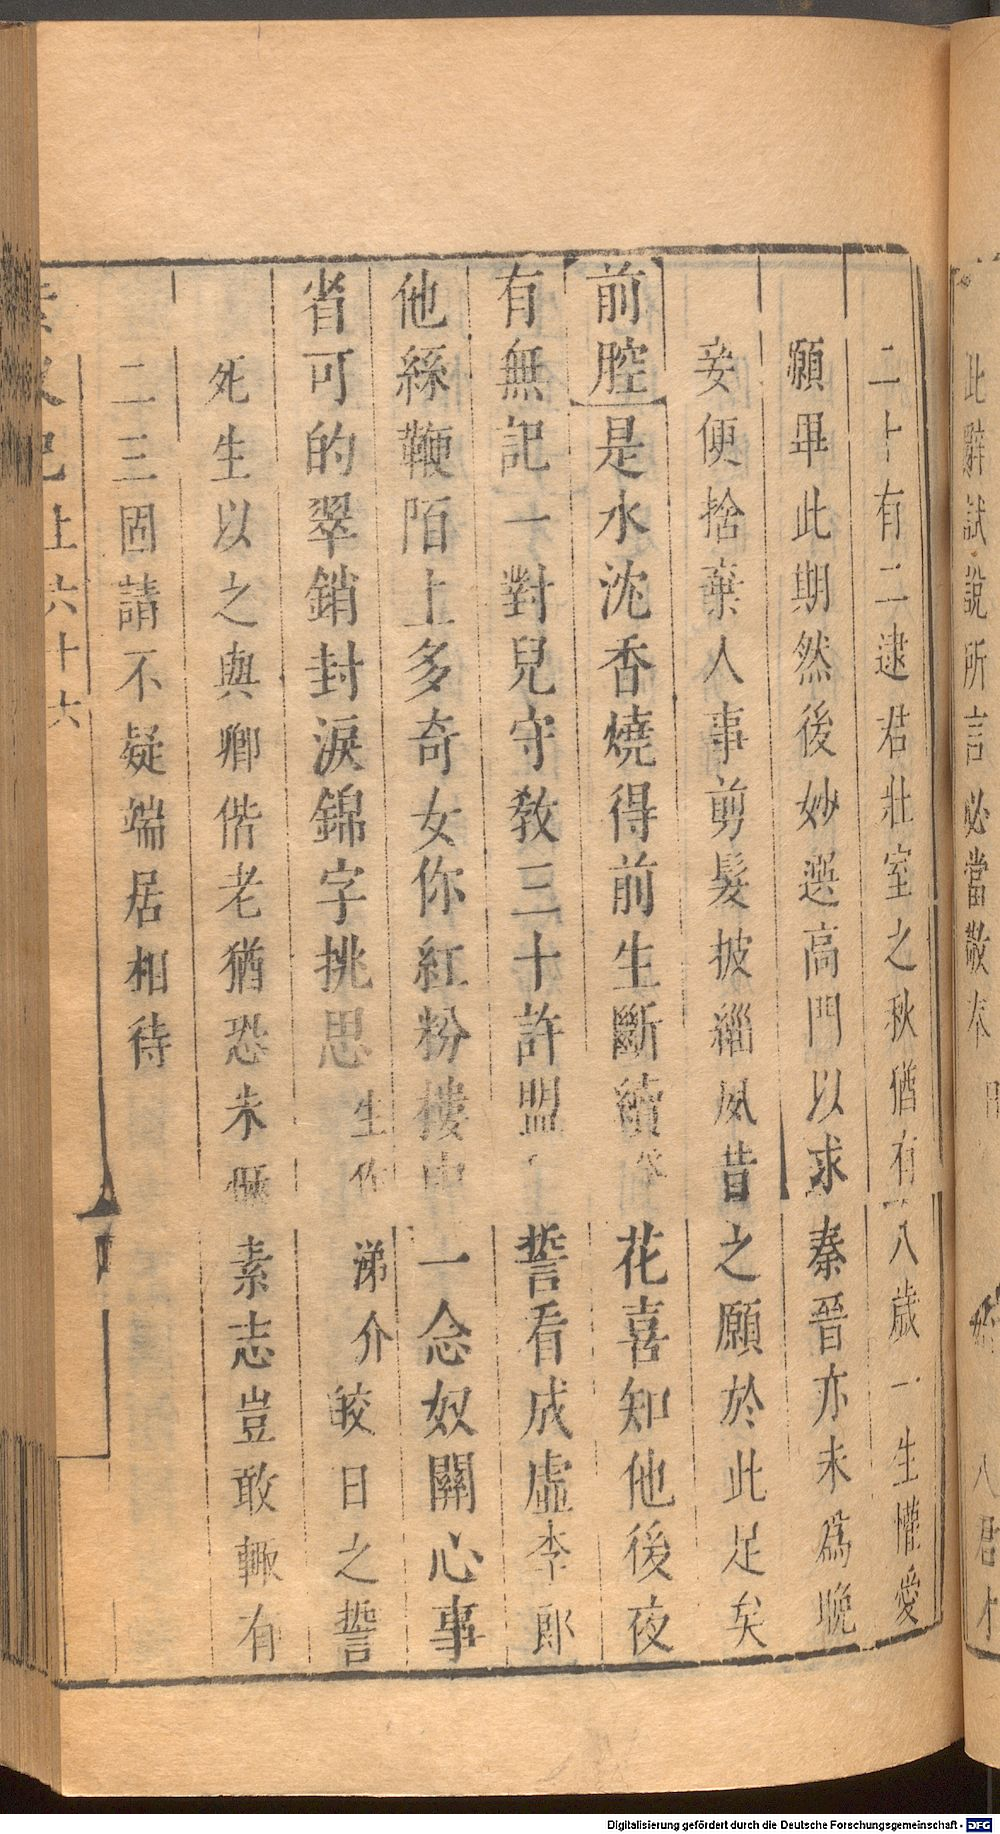 此辭試說所言必當敬奉
八君才
二十有二逮君壯室之秋猶有八歲一生懽愛
願畢此期然後妙選高門以求秦晉亦未爲晚
妾便捨棄人事剪髮披緇夙昔之願於此足矣
前腔是水沈香燒得前生斷續花喜知他後夜
有無記一對兒守教三十許盟誓看成虛李郎
他絲鞭陌上多奇女你紅粉樓中一念奴關心事
省可的翠銷封淚錦字挑思生作涕介皎日之誓
死生以之與卿偕老猶恐未愜素志豈敢輒有
二三固請不疑端居相待
上六十六
Digitalisierung gefördert durch die Deutsche Forschungsgemeinschaft - DFG